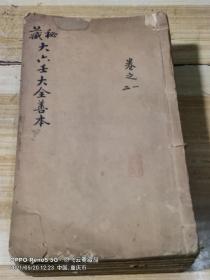 秘藏大六壬大全善本
卷之一二
OPPO Reno5 5G · @云斋藏品
2021/05/20 12:23 中国.重庆市